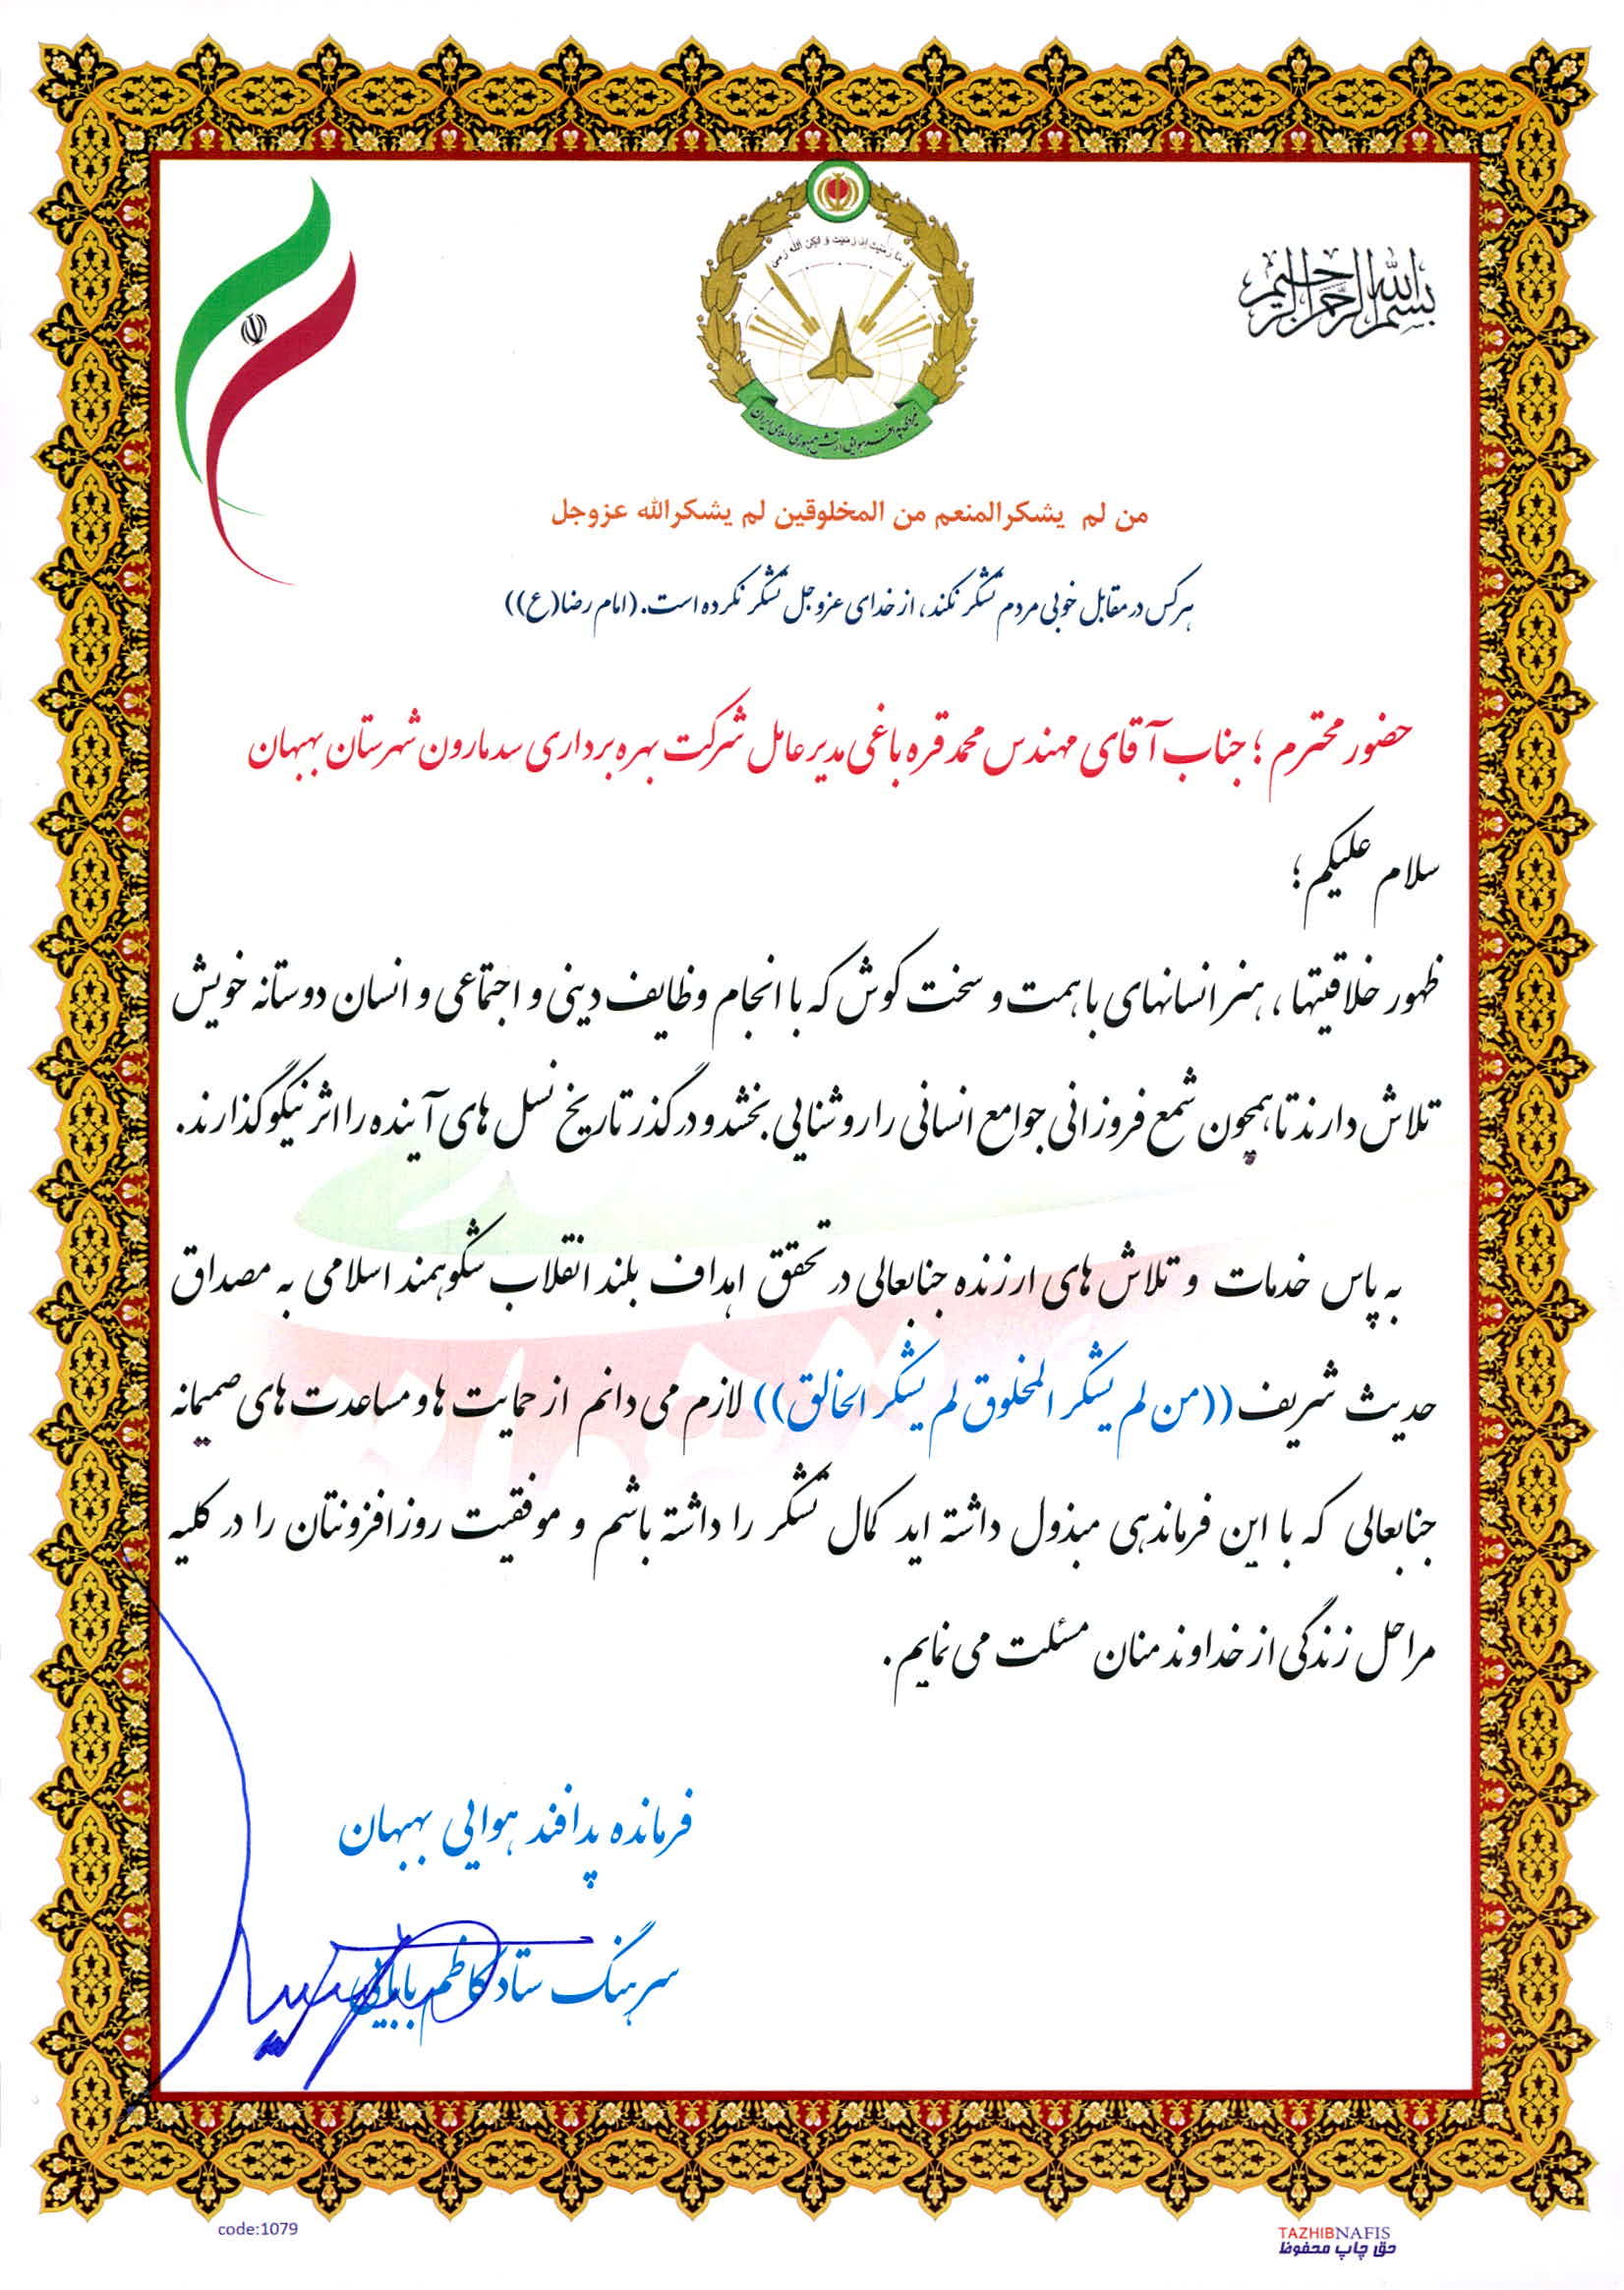 بسم الله الرحمن الرحیم
و ما رمیت اذ رمیت و لکن الله رمی
نیروی پدافند هوایی ارتش جمهوری اسلامی ایران
من لم یشکرالمنعم من المخلوقین لم یشکرالله عزوجل
هرکس در مقابل خوبی مردم تشکر نکند، از خدای عزوجل تشکر نکرده است. (امام رضا(ع))
حضور محترم ؛ جناب آقای مهندس محمد قره باغی مدیرعامل شرکت بهره برداری سد مارون شهرستان بهبهان
سلام علیکم ؛
ظهور خلاقیتها ، هنر انسانهای با همت و سخت کوش که با انجام وظایف دینی و اجتماعی و انسان دوستانه خویش
تلاش دارند تا همچون شمع فروزانی جوامع انسانی را روشنایی بخشد و در گذر تاریخ نسل های آینده را اثر نیکو گذارند.
به پاس خدمات و تلاش های ارزنده جنابعالی در تحقق اهداف بلند انقلاب شکوهمند اسلامی به مصداق
حدیث شریف ((من لم یشکر المخلوق لم یشکر الخالق)) لازم می دانم از حمایت ها و مساعدت های صمیمانه
جنابعالی که با این فرماندهی مبذول داشته اید کمال تشکر را داشته باشم و موفقیت روزافزونتان را در کلیه
مراحل زندگی از خداوند منان مسئلت می نمایم.
فرمانده پدافند هوایی بهبهان
سرهنگ ستاد کاظم بابایی
code:1079
TAZHIBNAFIS
حق چاپ محفوظ